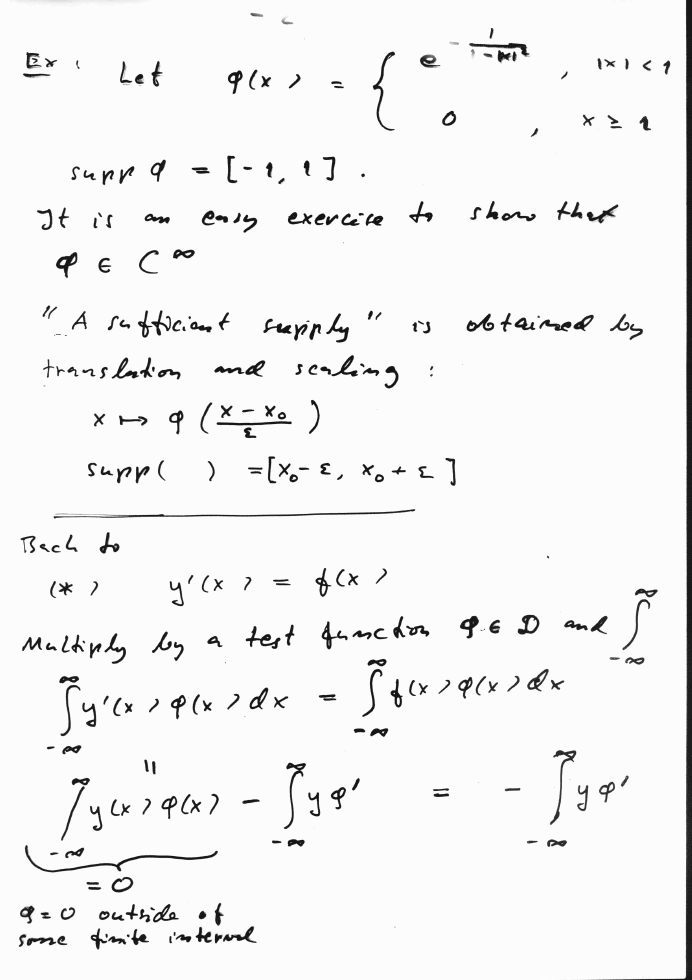 Ex: Let φ(x) = { e^{-1/(1-|x|²)}, |x| < 1
0, x ≥ 1
supp φ = [-1, 1].
It is an easy exercise to show that
φ ∈ C^∞
"A sufficient supply" is obtained by
translation and scaling:
x ↦ φ((x - x₀)/ε)
supp( ) = [x₀ - ε, x₀ + ε]
Back to
(*) y'(x) = f(x)
Multiply by a test function φ ∈ D and ∫_{-∞}^{∞}
∫_{-∞}^{∞} y'(x) φ(x) dx = ∫_{-∞}^{∞} f(x) φ(x) dx
||
/_{-∞}^{∞} y(x) φ(x) - ∫_{-∞}^{∞} y φ' = - ∫_{-∞}^{∞} y φ'
= 0
φ = 0 outside of
some finite interval